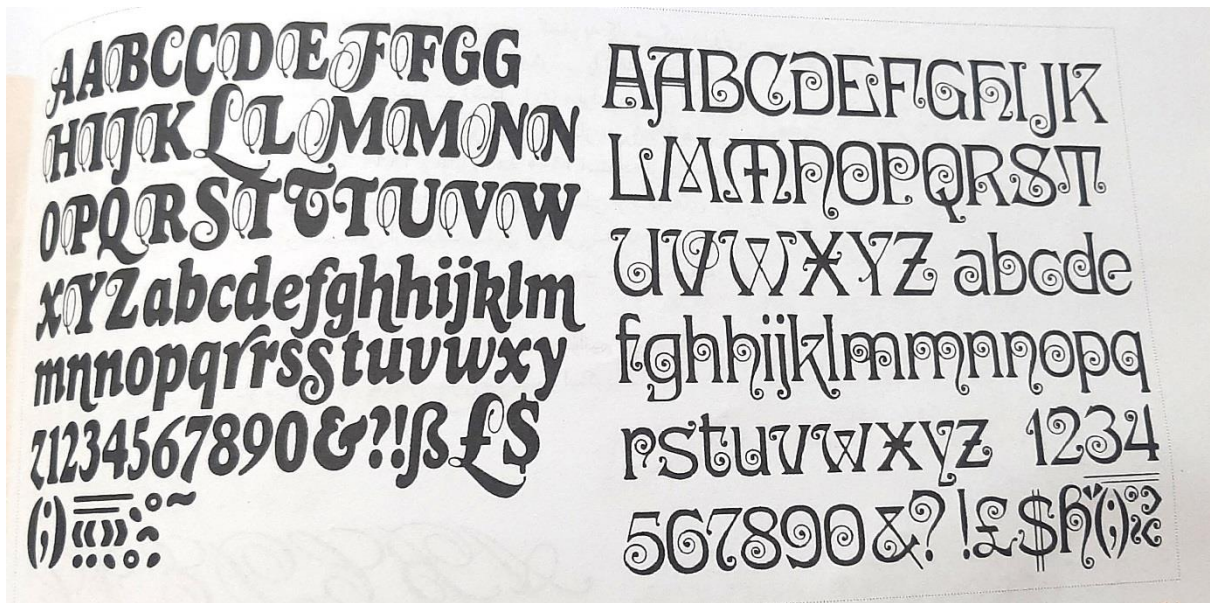 AABCCDEFFGG
HIJKLLMMNN
OPQRSTTTUVW
XYZabcdefghhijklm
mnnopqrrsstuvwxy
z1234567890&?!ß£$
(;)
AABCDEFGHIJK
LMMNOPQRST
UVWXYZ abcde
fghhijklmmnnopq
rstuvwxyz 1234
567890&?!£$ß();